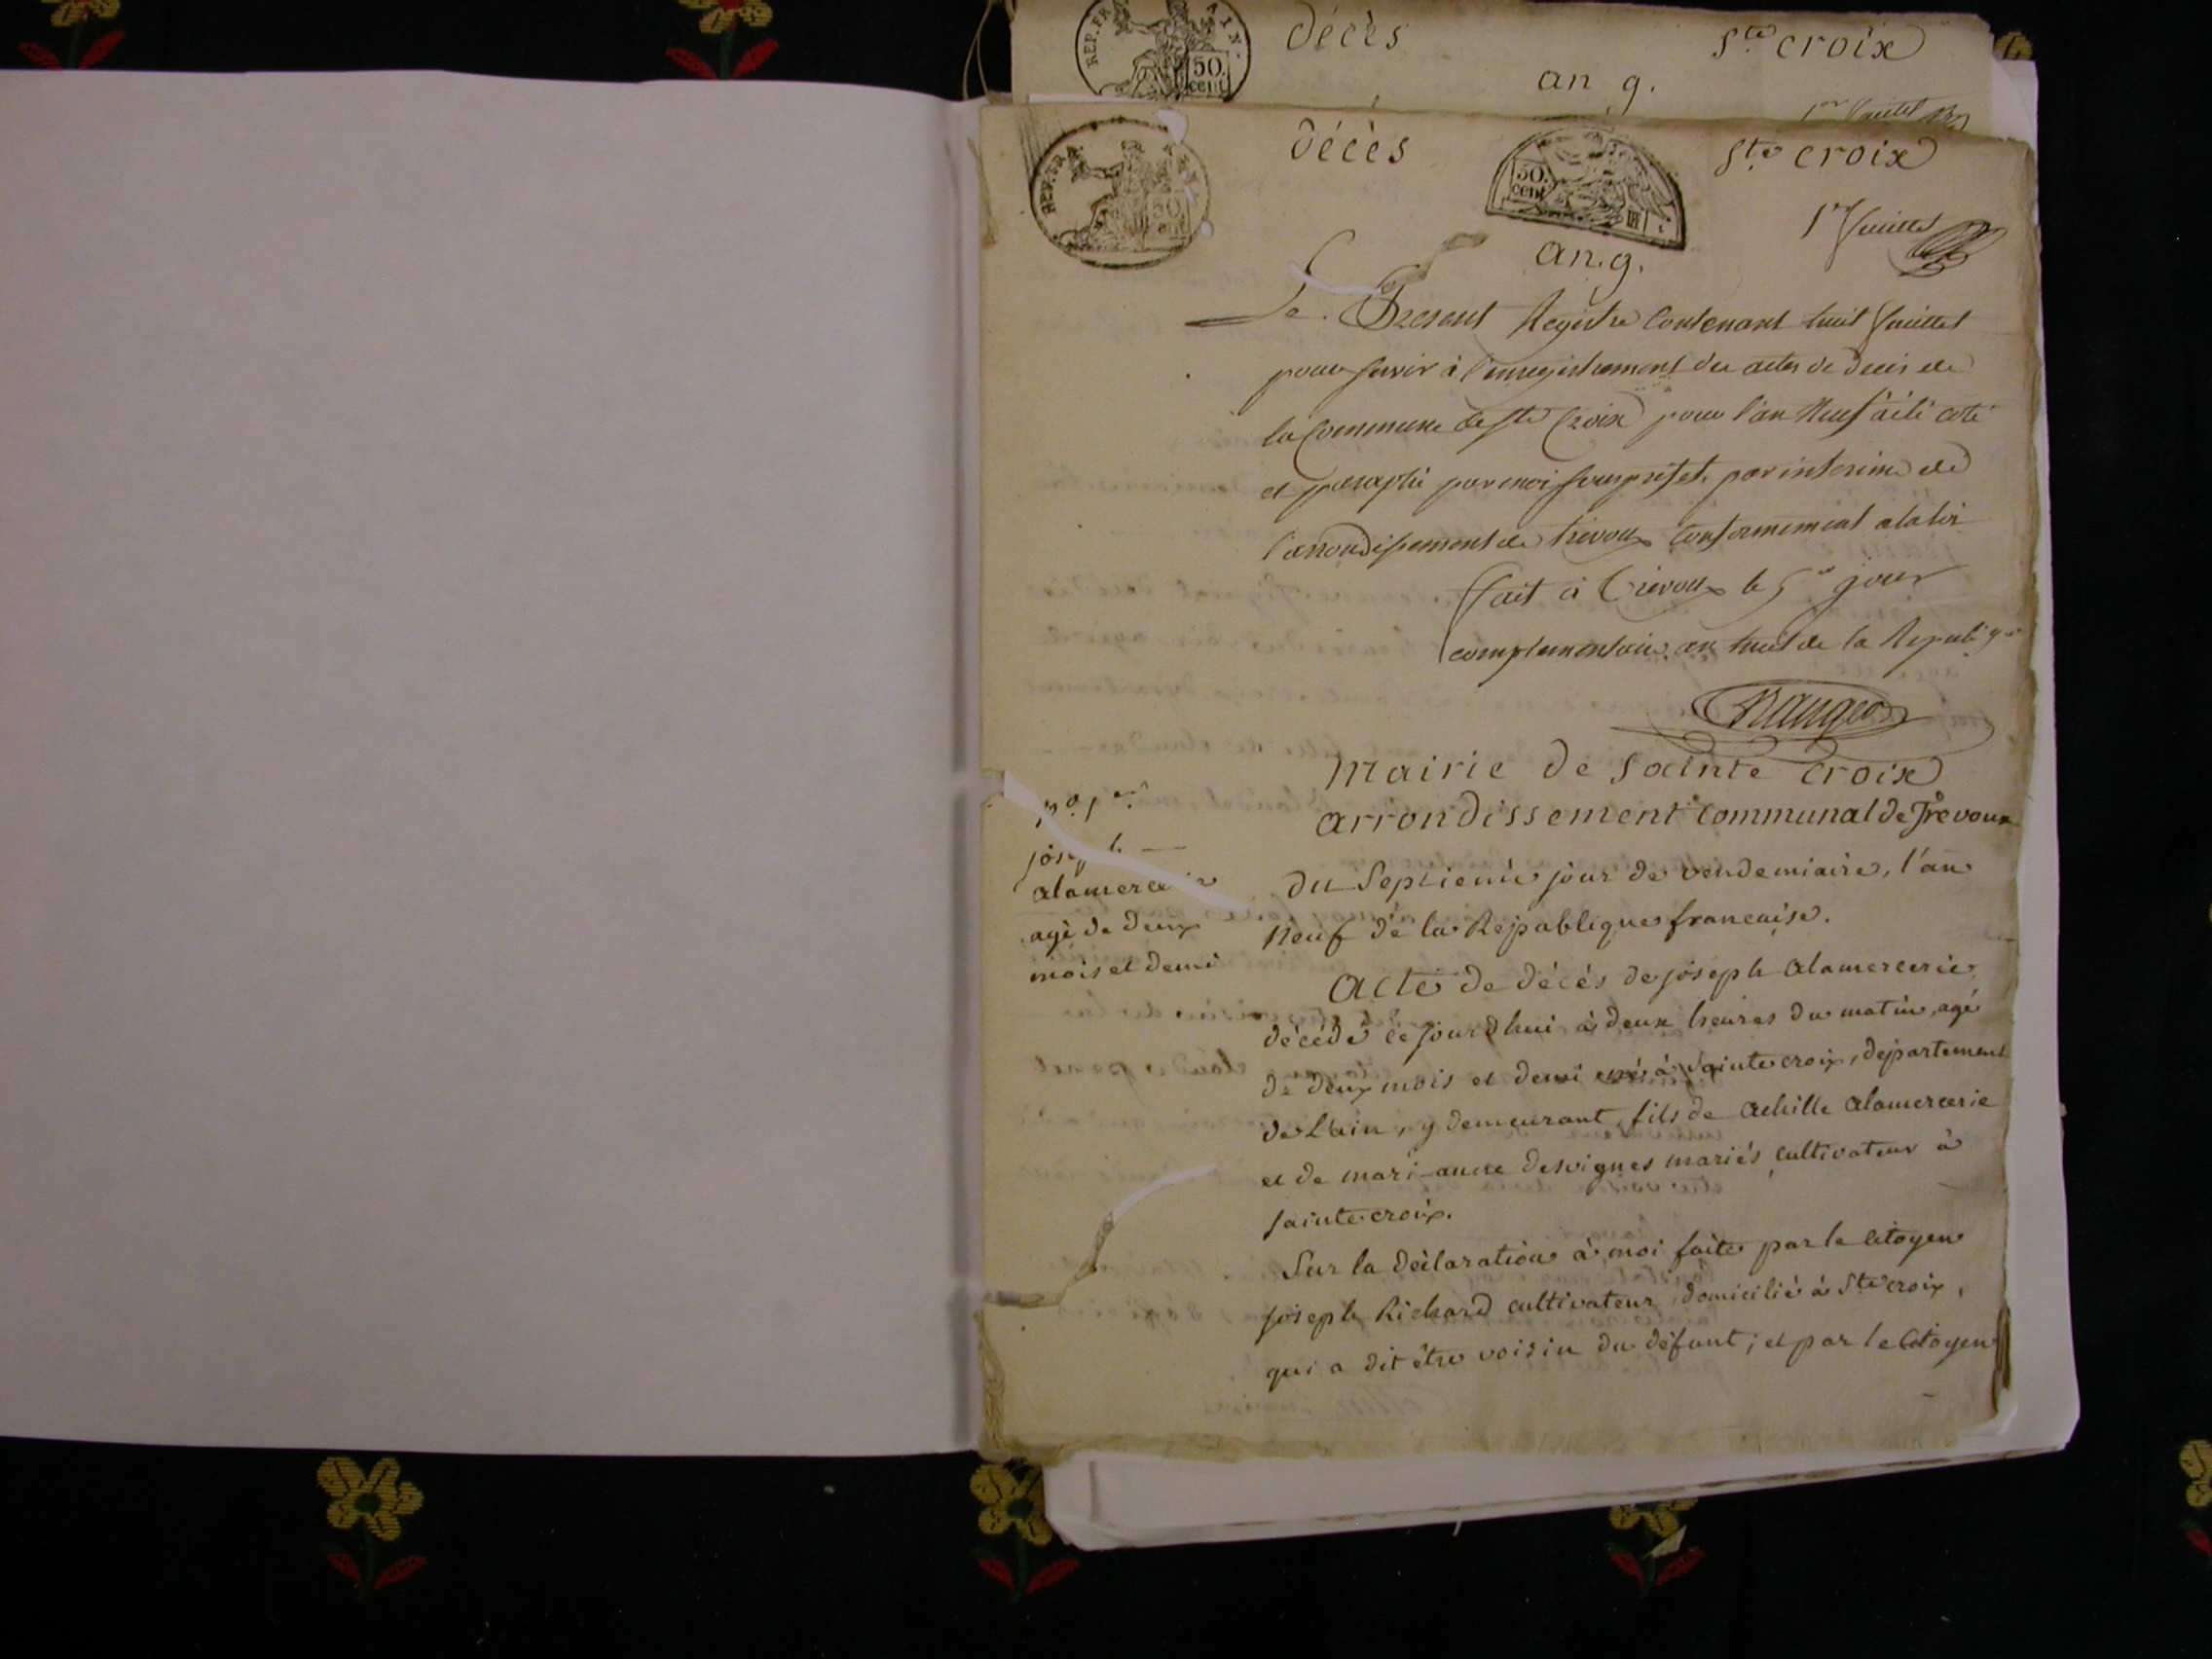 REP. FRA
AIN.
50.
cent
décès
Ste croix
an 9.
1er feuillet
REP. FRA
AIN.
50
cent
décès
50.
cent
Ste croix
1er feuillet
an. 9.
Le Present Registre Contenant huit feuillet
pour servir à l'enregistrement des actes de deces de
la Commune de Ste Croix pour l'an Neuf a été coté
et paraphé par moi souspréfet par interime de
l'arrondissement de trevoux Conformement a la loi
fait à Trevoux le 5e jour
complementaire an huit de la Republique
mairie de sainte croix
arrondissement communal de Trevoux
No. 1er
joseph
alamercerie
agé de deux
mois et demi
du Septieme jour de vendemiaire, l'an
neuf de la Republique francaise.
Acte de décés de joseph alamercerie,
décédé ce jourdhui à deux heures du matin, agé
de deux mois et demi né à sainte croix, departement
de Lain, y demeurant, fils de achille alamercerie
et de mari-anne desvignes mariés, cultivateur à
sainte croix.
Sur la déclaration à moi faite par le citoyen
joseph Richard cultivateur, domicilié à Ste croix,
qui a dit être voisin du défunt ; et par le Citoyen